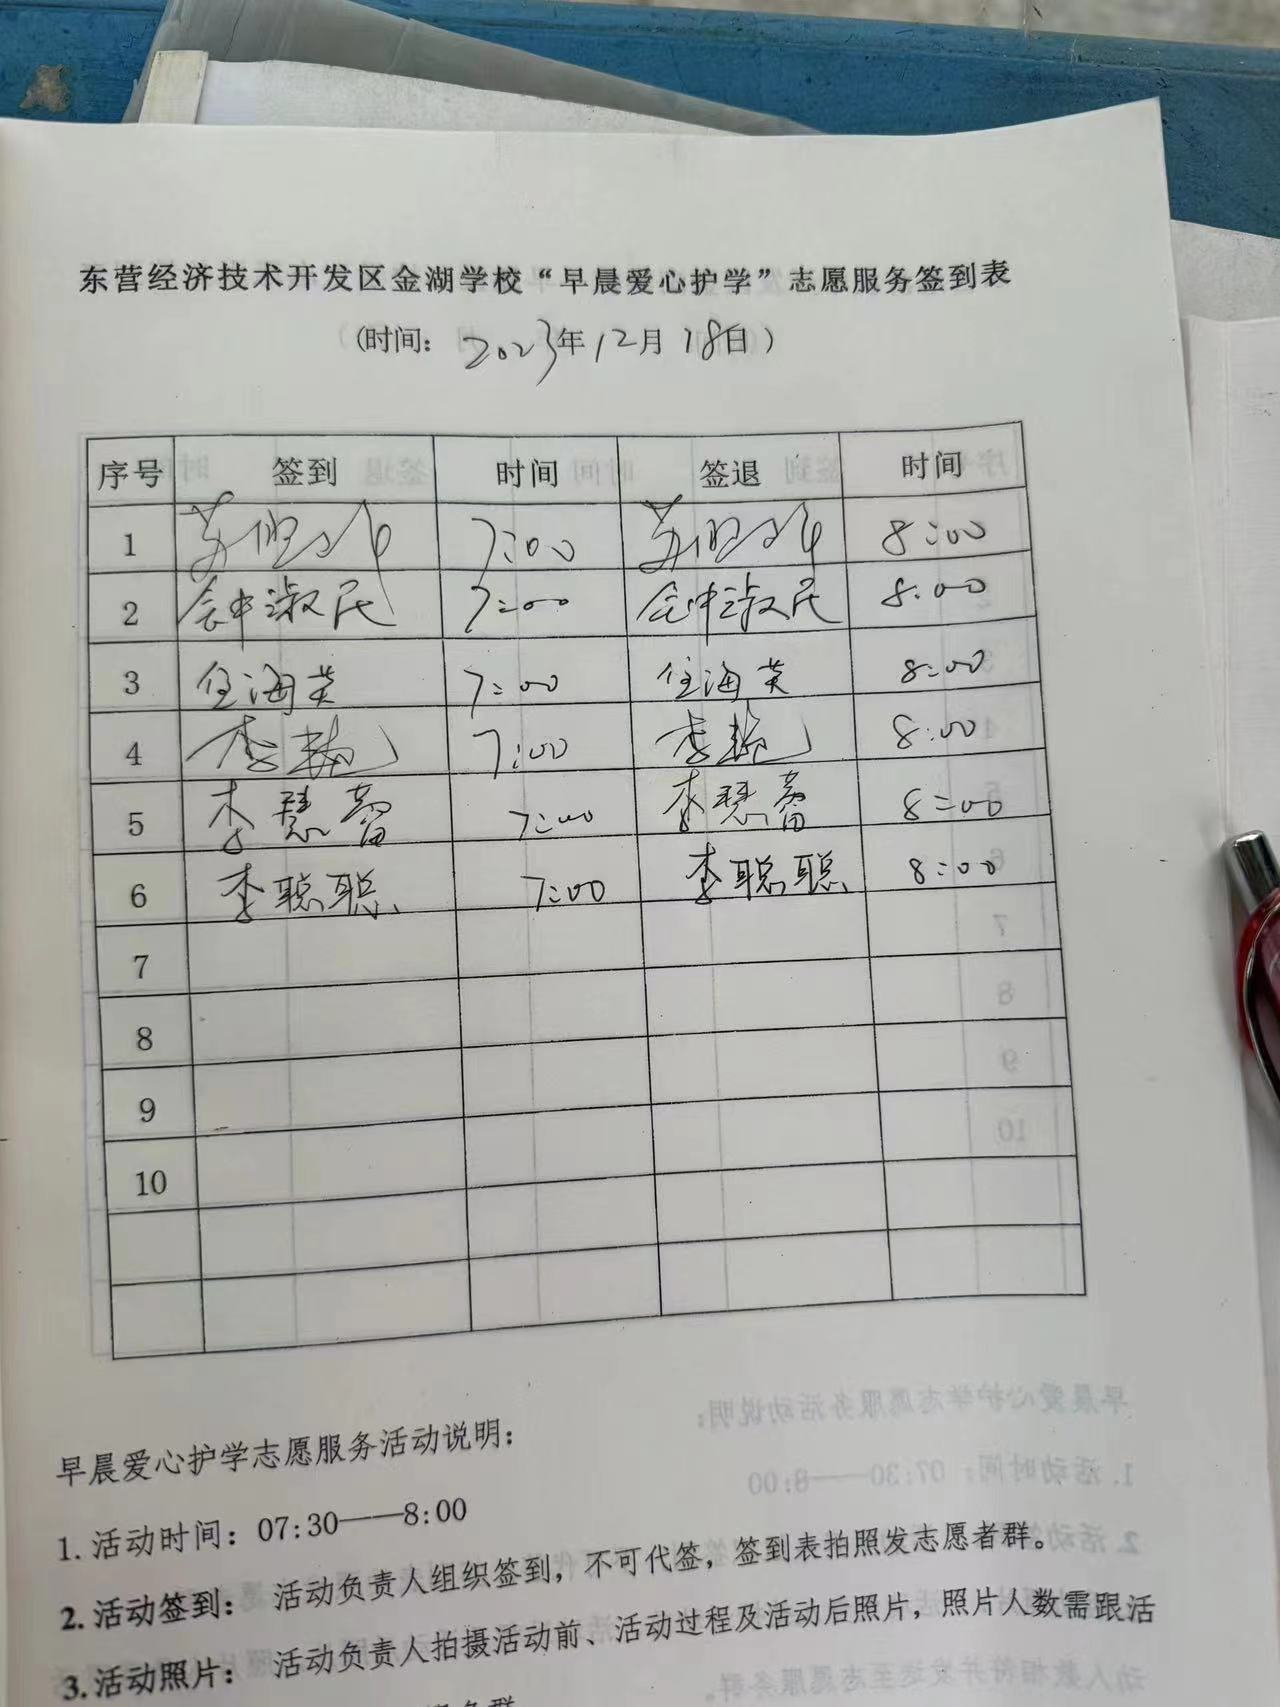 东营经济技术开发区金湖学校“早晨爱心护学”志愿服务签到表
(时间: 2023年12月18日)
序号 签到 时间 签退 时间
1 7:00 8:00
2 淑民 7:00 淑民 8:00
3 任海英 7:00 任海英 8:00
4 李艳 7:00 李艳 8:00
5 李慧蕾 7:00 李慧蕾 8:00
6 李聪聪 7:00 李聪聪 8:00
7
8
9
10
早晨爱心护学志愿服务活动说明:
1.活动时间: 07:30——8:00
2.活动签到: 活动负责人组织签到,不可代签,签到表拍照发志愿者群。
3.活动照片: 活动负责人拍摄活动前、活动过程及活动后照片,照片人数需跟活